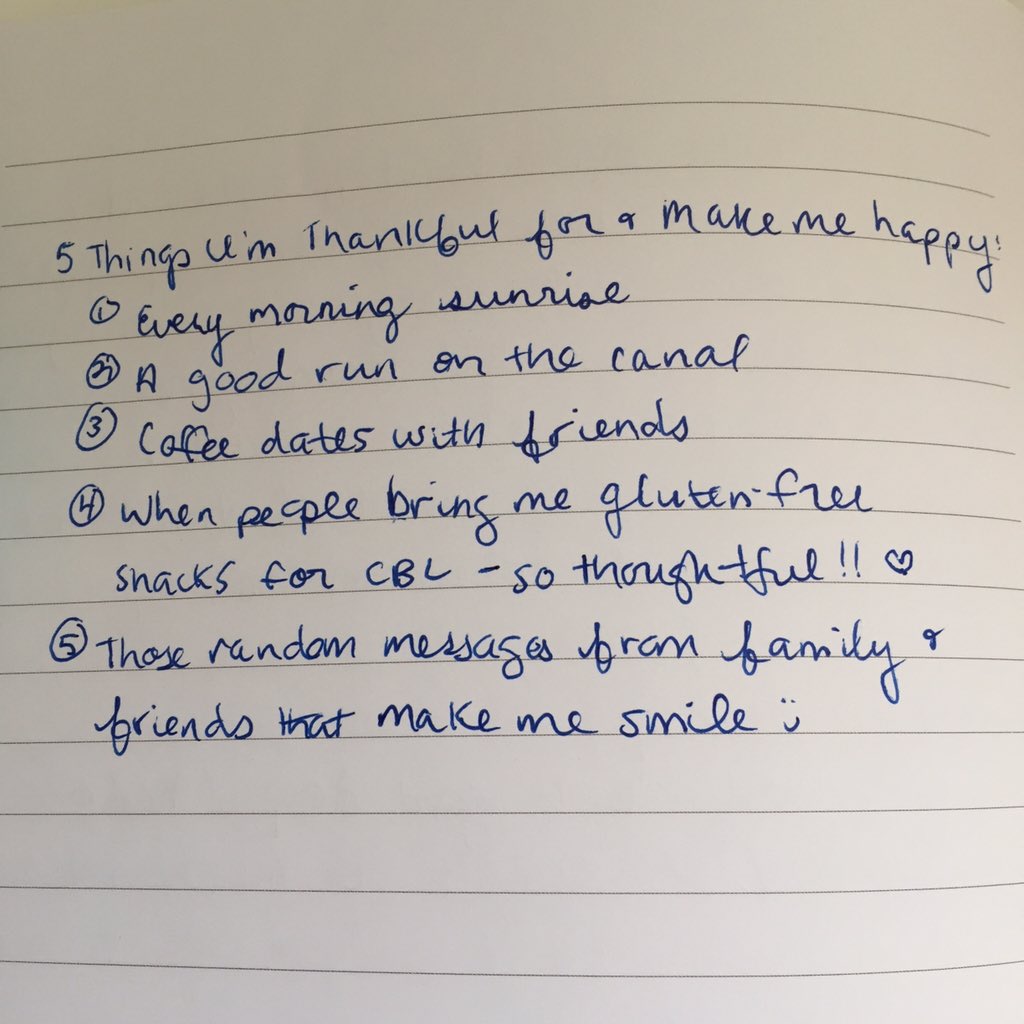 5 Things I'm Thankful for & make me happy:
① Every morning sunrise
② A good run on the canal
③ Coffee dates with friends
④ When people bring me gluten-free
snacks for CBL - so thoughtful!! ♡
⑤ Those random messages from family &
friends that make me smile :)